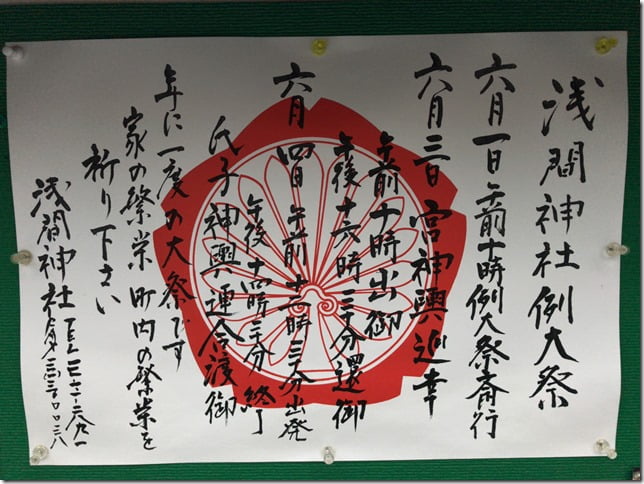 浅間神社例大祭
六月一日午前十時例大祭斎行
六月三日宮神輿巡幸
午前十時出御
午後十六時三十分還御
六月四日午前十一時三十分出発
午後十四時三十分終了
氏子神輿連合渡御
年に一度の大祭です
家の繁栄町内の繁栄を
祈り下さい
浅間神社